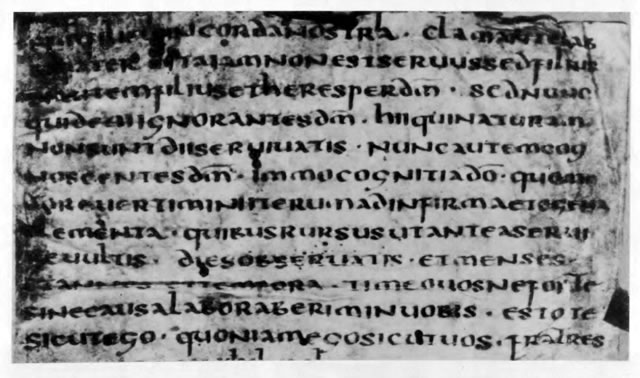 in corda nostra · clamantem ab
pater · ita iam non est seruus sed filius
autem filius et heres per dm̄ · sed nunc
quidem ignorantes dm̄ · hii qui natura
non sunt dii seruiuatis · nunc autem cog
noscentes dm̄ · immo cogniti a dō · quomo
do reuertimini iterum ad infirma et egena
elementa · quibus rursus ut antea serui
re uultis · dies obseruatis · et menses ·
annos et tempora · timeo uos ne forte
sine causa laboraberim in uobis · estote
sicut ego · quoniam ego sicut uos · fratres